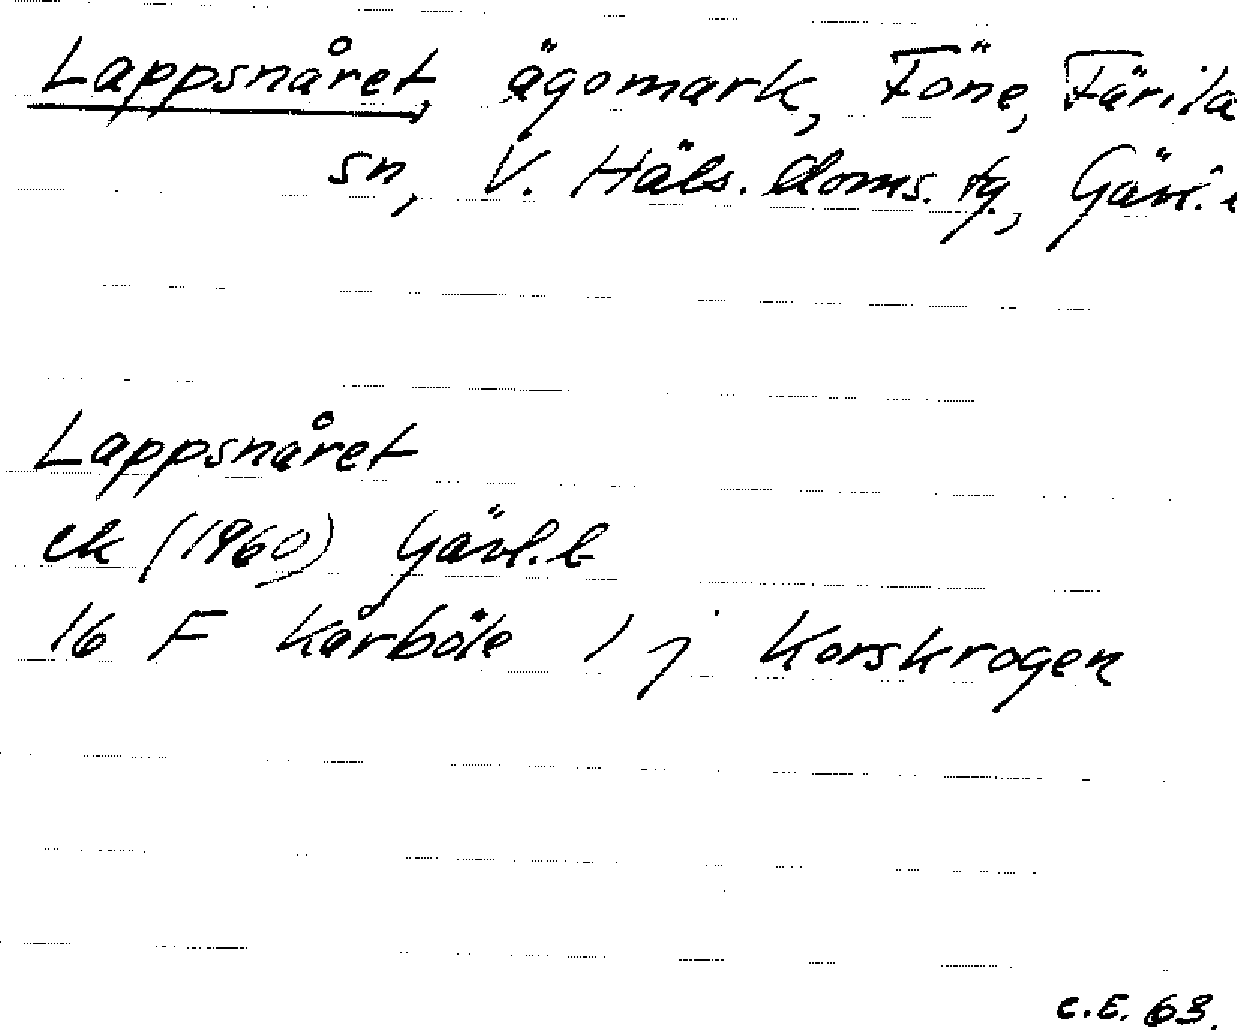 Lappsnåret, ägomark, Föne, Färila
sn, V. Häls. doms. tg., Gävl. l
Lappsnåret
ek (1960) Gävl. l
16 F Kårböle 1 j Korskrogen
C.E. 63.